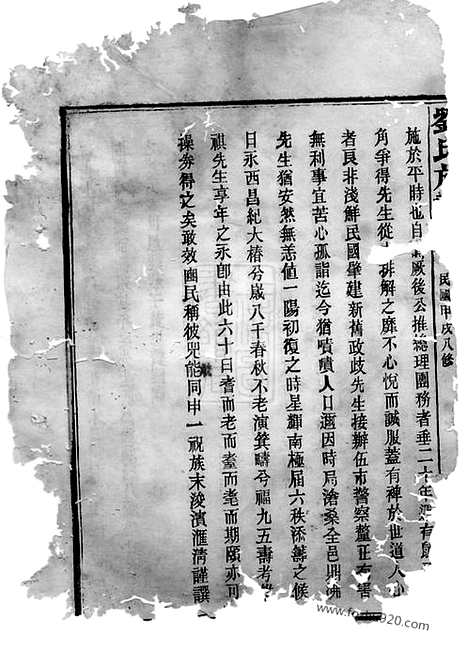 劉氏
民國甲戌八修
施於平時也自厥後公推總理團務者垂二十年遇有
角爭得先生從排解之靡不心悅而誠服蓋有裨於世道人
者良非淺鮮民國肇建新舊政歧先生接辦伍市警察釐正有
無利事宜苦心孤詣迄今猶嘖嘖人口邇因時局滄桑全邑鼎沸
先生猶安然無恙值一陽初復之時星輝南極屆六秩添籌之候
日永西昌紀大椿兮歲八千春秋不老演箕疇兮福九五壽考
祺先生享年之永卽由此六十日耆而老而耋而耄而期頤亦可
操券得之矣敢效豳民稱彼兕觥同申一祝族末浚濱滙清謹譔
www.foxbj920.com